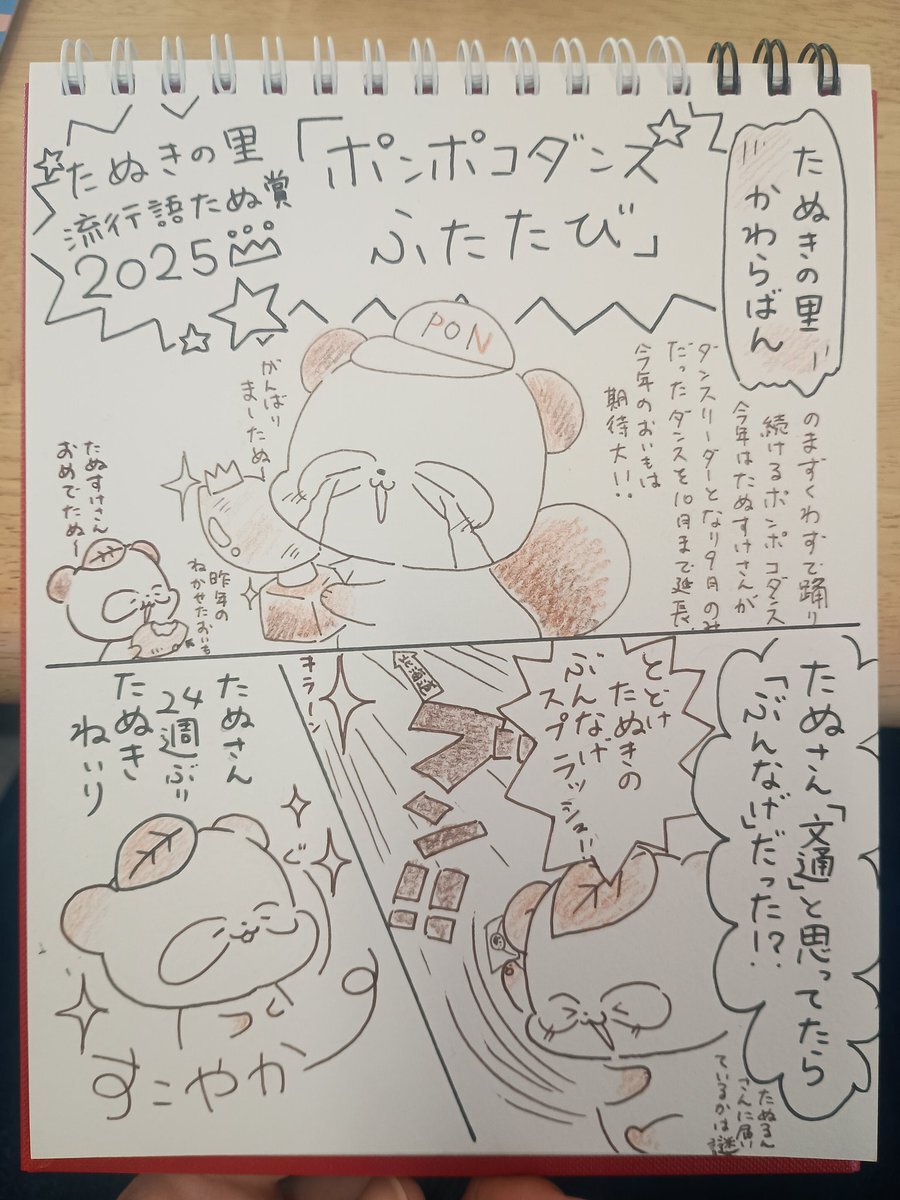 たぬきの里
かわらばん
「ポンポコダンス
ふたたび」
たぬきの里
流行語たぬ賞
2025
のまずくわずで踊り
続けるポンポコダンス
今年はたぬすけさんが
ダンスリーダーとなり9月のみ
だったダンスを10月まで延長
今年のおいもは
期待大!!
PON
がんばり
ましたぬ〜
たぬすけさん
おめでたぬ〜
昨年の
ねかせたおいも
たぬさん「文通」と思ってたら
「ぶんなげ」だった!?
とどけ
たぬきの
ぶんなげ
スプラッシュ!!
北海道
キラーン
たぬるん
さんに届い
ているかは謎
たぬさん
24週ぶり
たぬき
ねいり
ぐ
すこやか